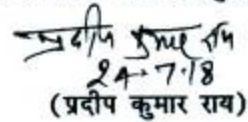 प्रदीप कुमार राय
24.7.18
(प्रदीप कुमार राय)